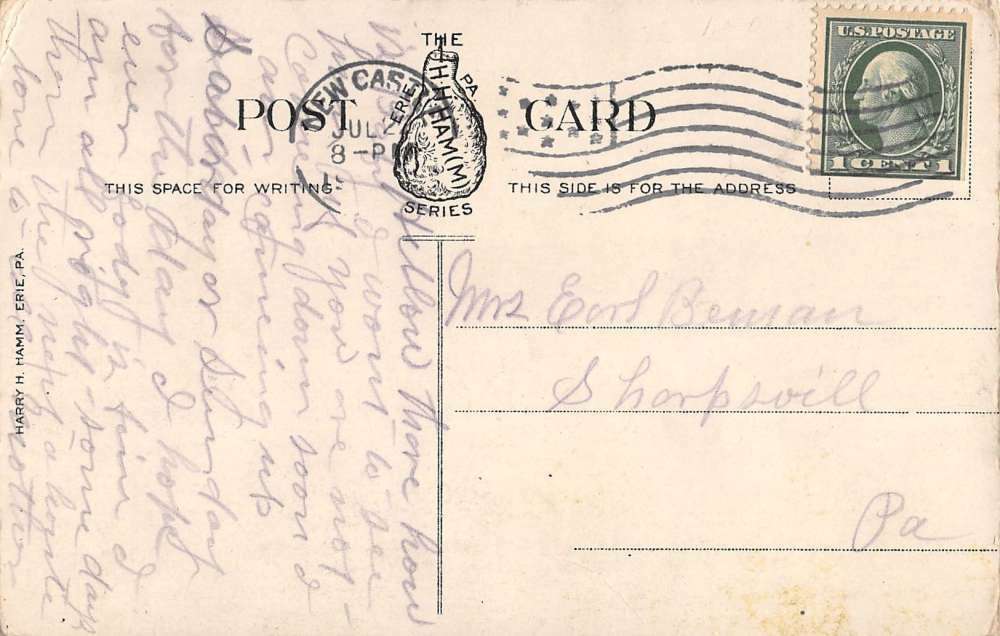 THE
H.H.HAM(M)
ERIE PA
SERIES
POST CARD
NEW CAST
JUL 2
8-P
U.S. POSTAGE
1 CENT 1
THIS SPACE FOR WRITING
THIS SIDE IS FOR THE ADDRESS
HARRY H. HAMM, ERIE, PA.
Mrs Earl Beman
Sharpsvill
Pa
Hellow there how
I want to see
if you are not
Coming down soon I
am comeing up
Saturday or Sunday
for the day I hope
every body is fine I
am all right some days
then